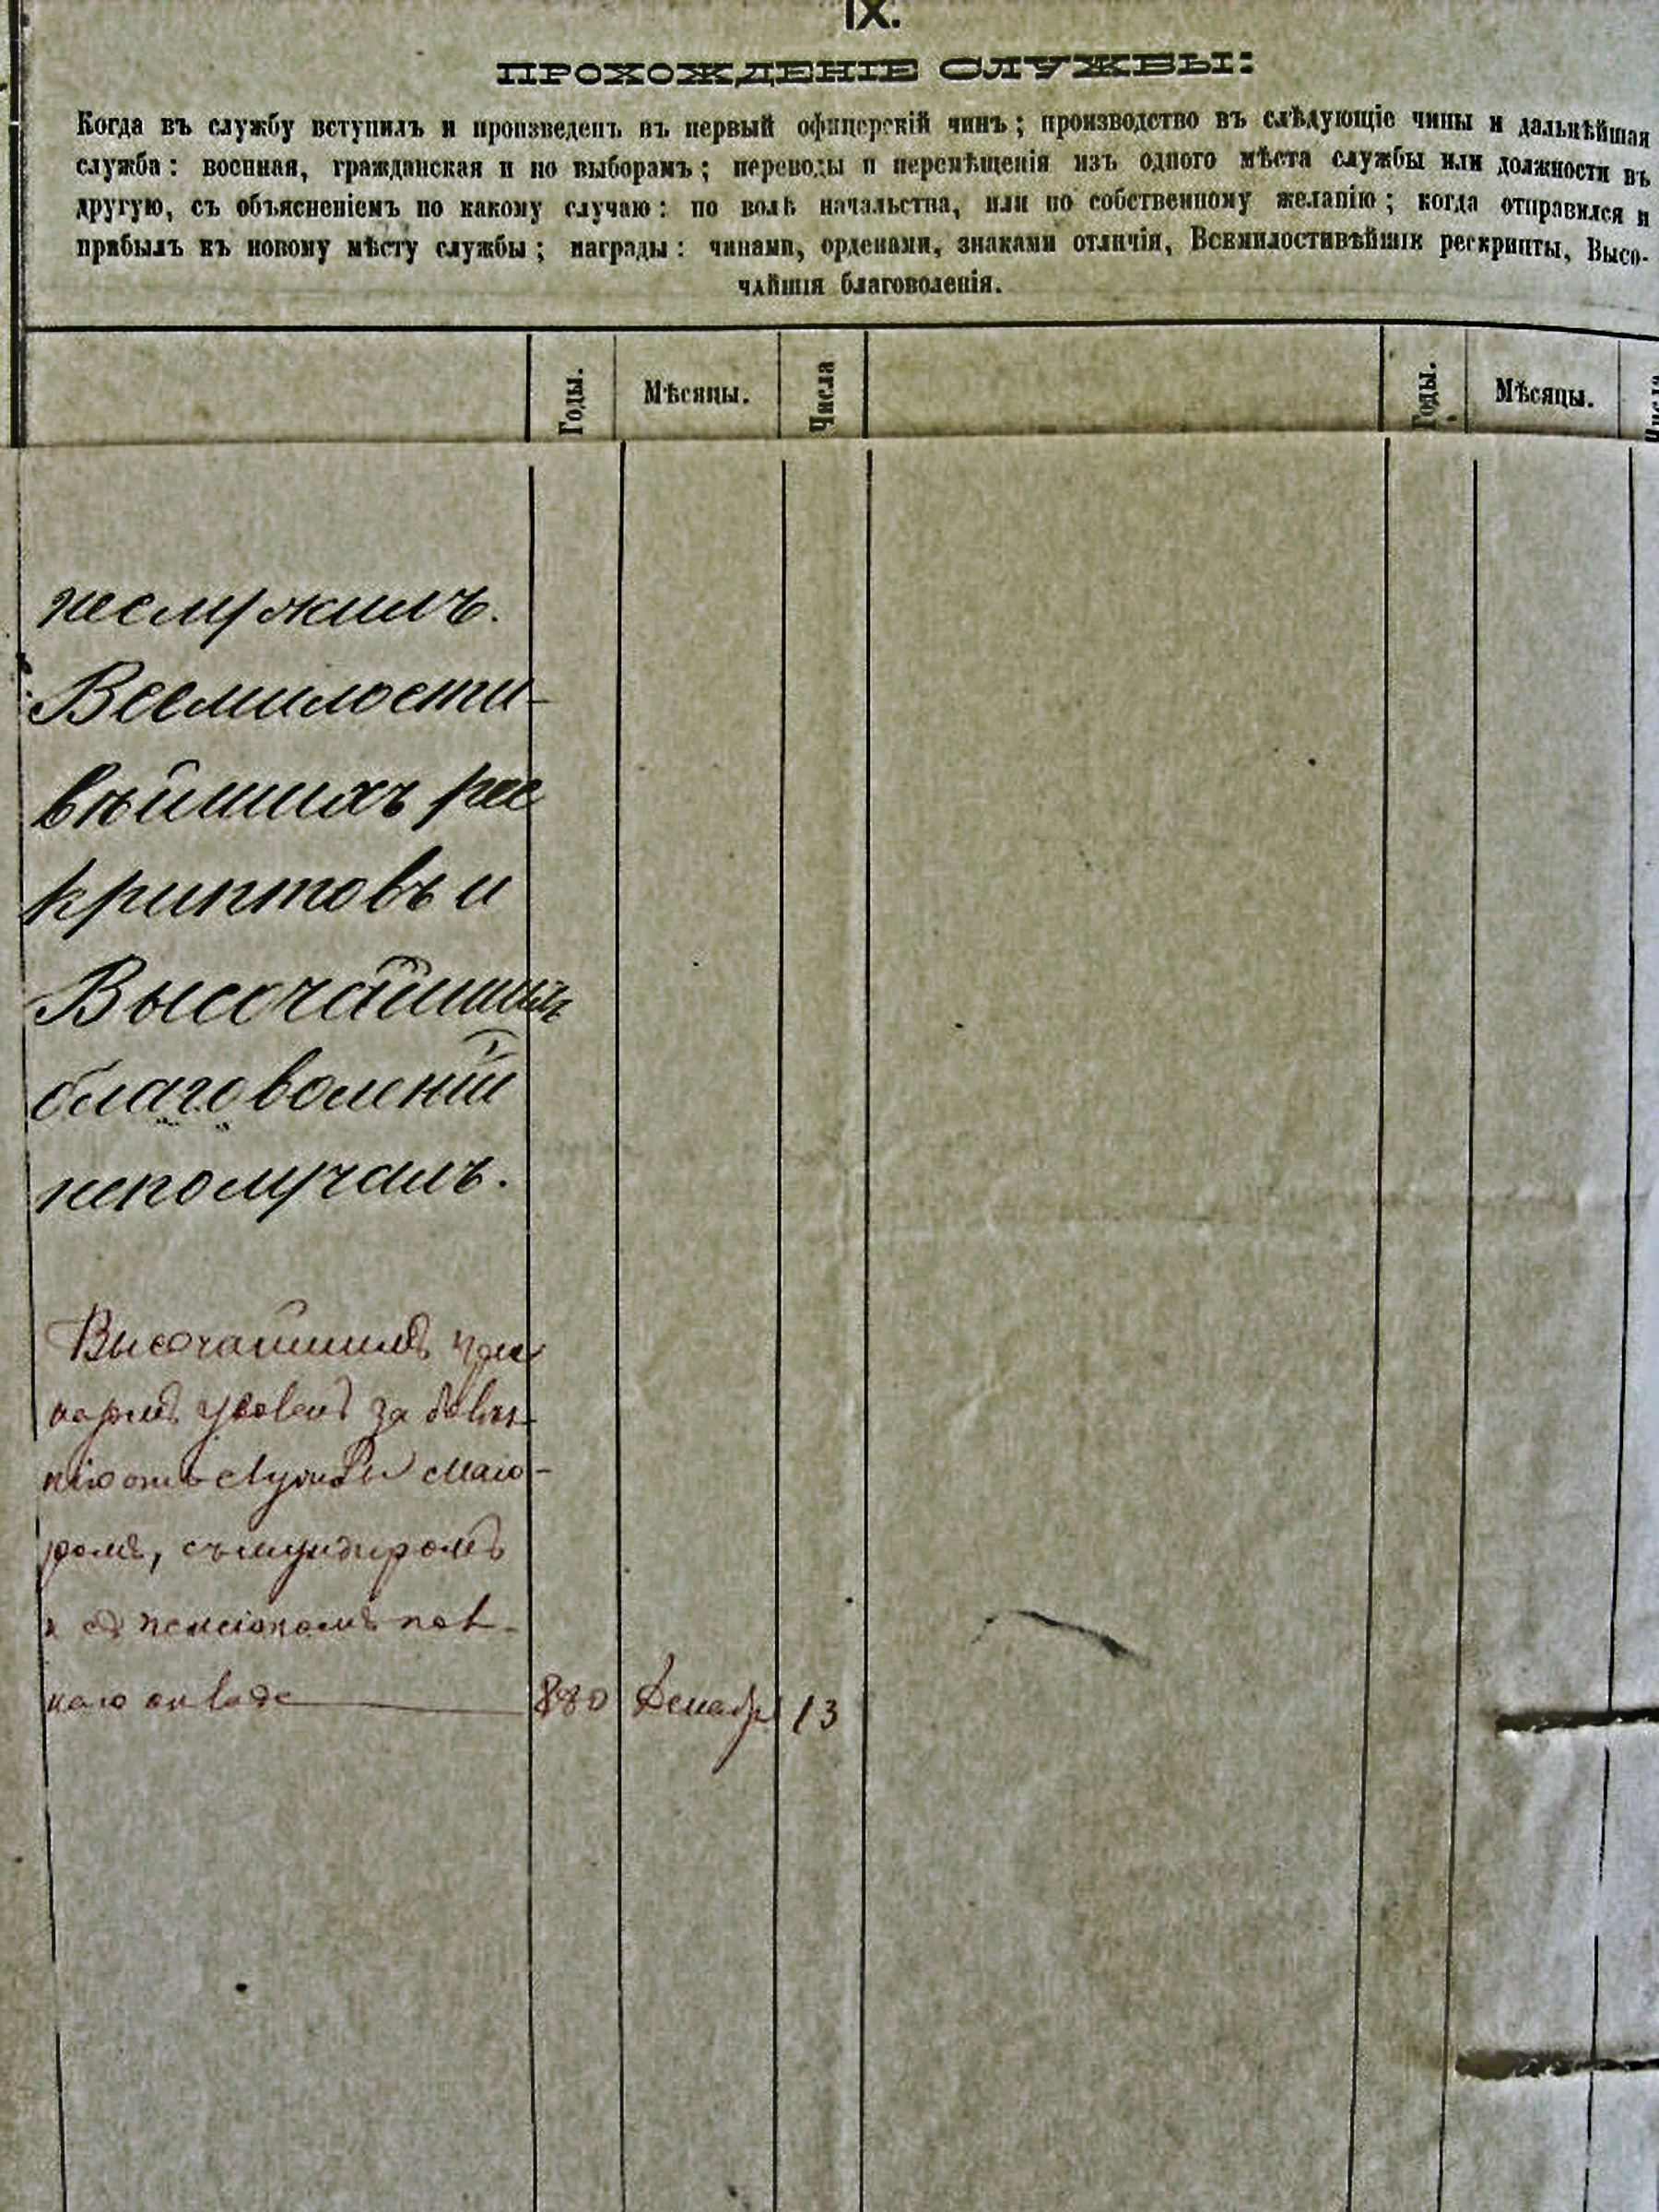 IX.
ПРОХОЖДЕНІЕ СЛУЖБЫ:
Когда въ службу вступилъ и произведенъ въ первый офицерскій чинъ; производство въ слѣдующіе чины и дальнѣйшая
служба: военная, гражданская и по выборамъ; переводы и перемѣщенія изъ одного мѣста службы или должности въ
другую, съ объясненіемъ по какому случаю: по волѣ начальства, или по собственному желанію; когда отправился и
прибылъ къ новому мѣсту службы; награды: чинами, орденами, знаками отличія, Всемилостивѣйшія рескрипты, Высо-
чАйшія благоволенія.
Годы. Мѣсяцы. Числа Годы. Мѣсяцы. Числа
неслужилъ.
Всемилости-
вѣйшихъ рес
криптовъ и
Высочайшихъ
благоволеній
неполучалъ.
Высочайшимъ при
казомъ уволенъ за болѣз
нію отъ службы маіо-
ромъ, съ мундиромъ
и съ пенсіономъ пол-
наго оклада 880 Декабр 13